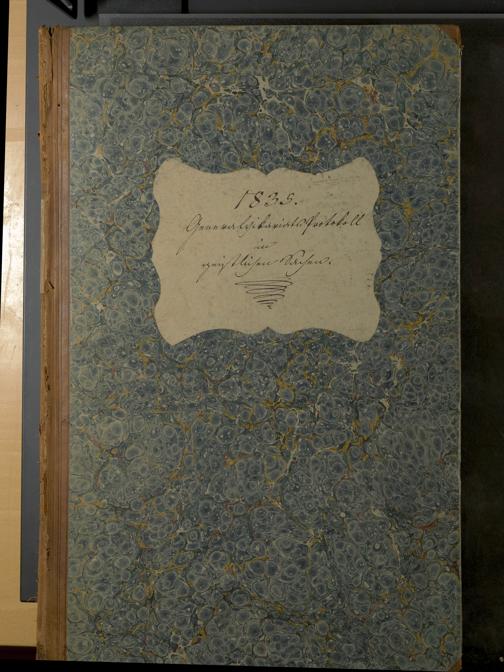 1835.
Generalvikariats Protokoll
in
geistlichen Sachen.